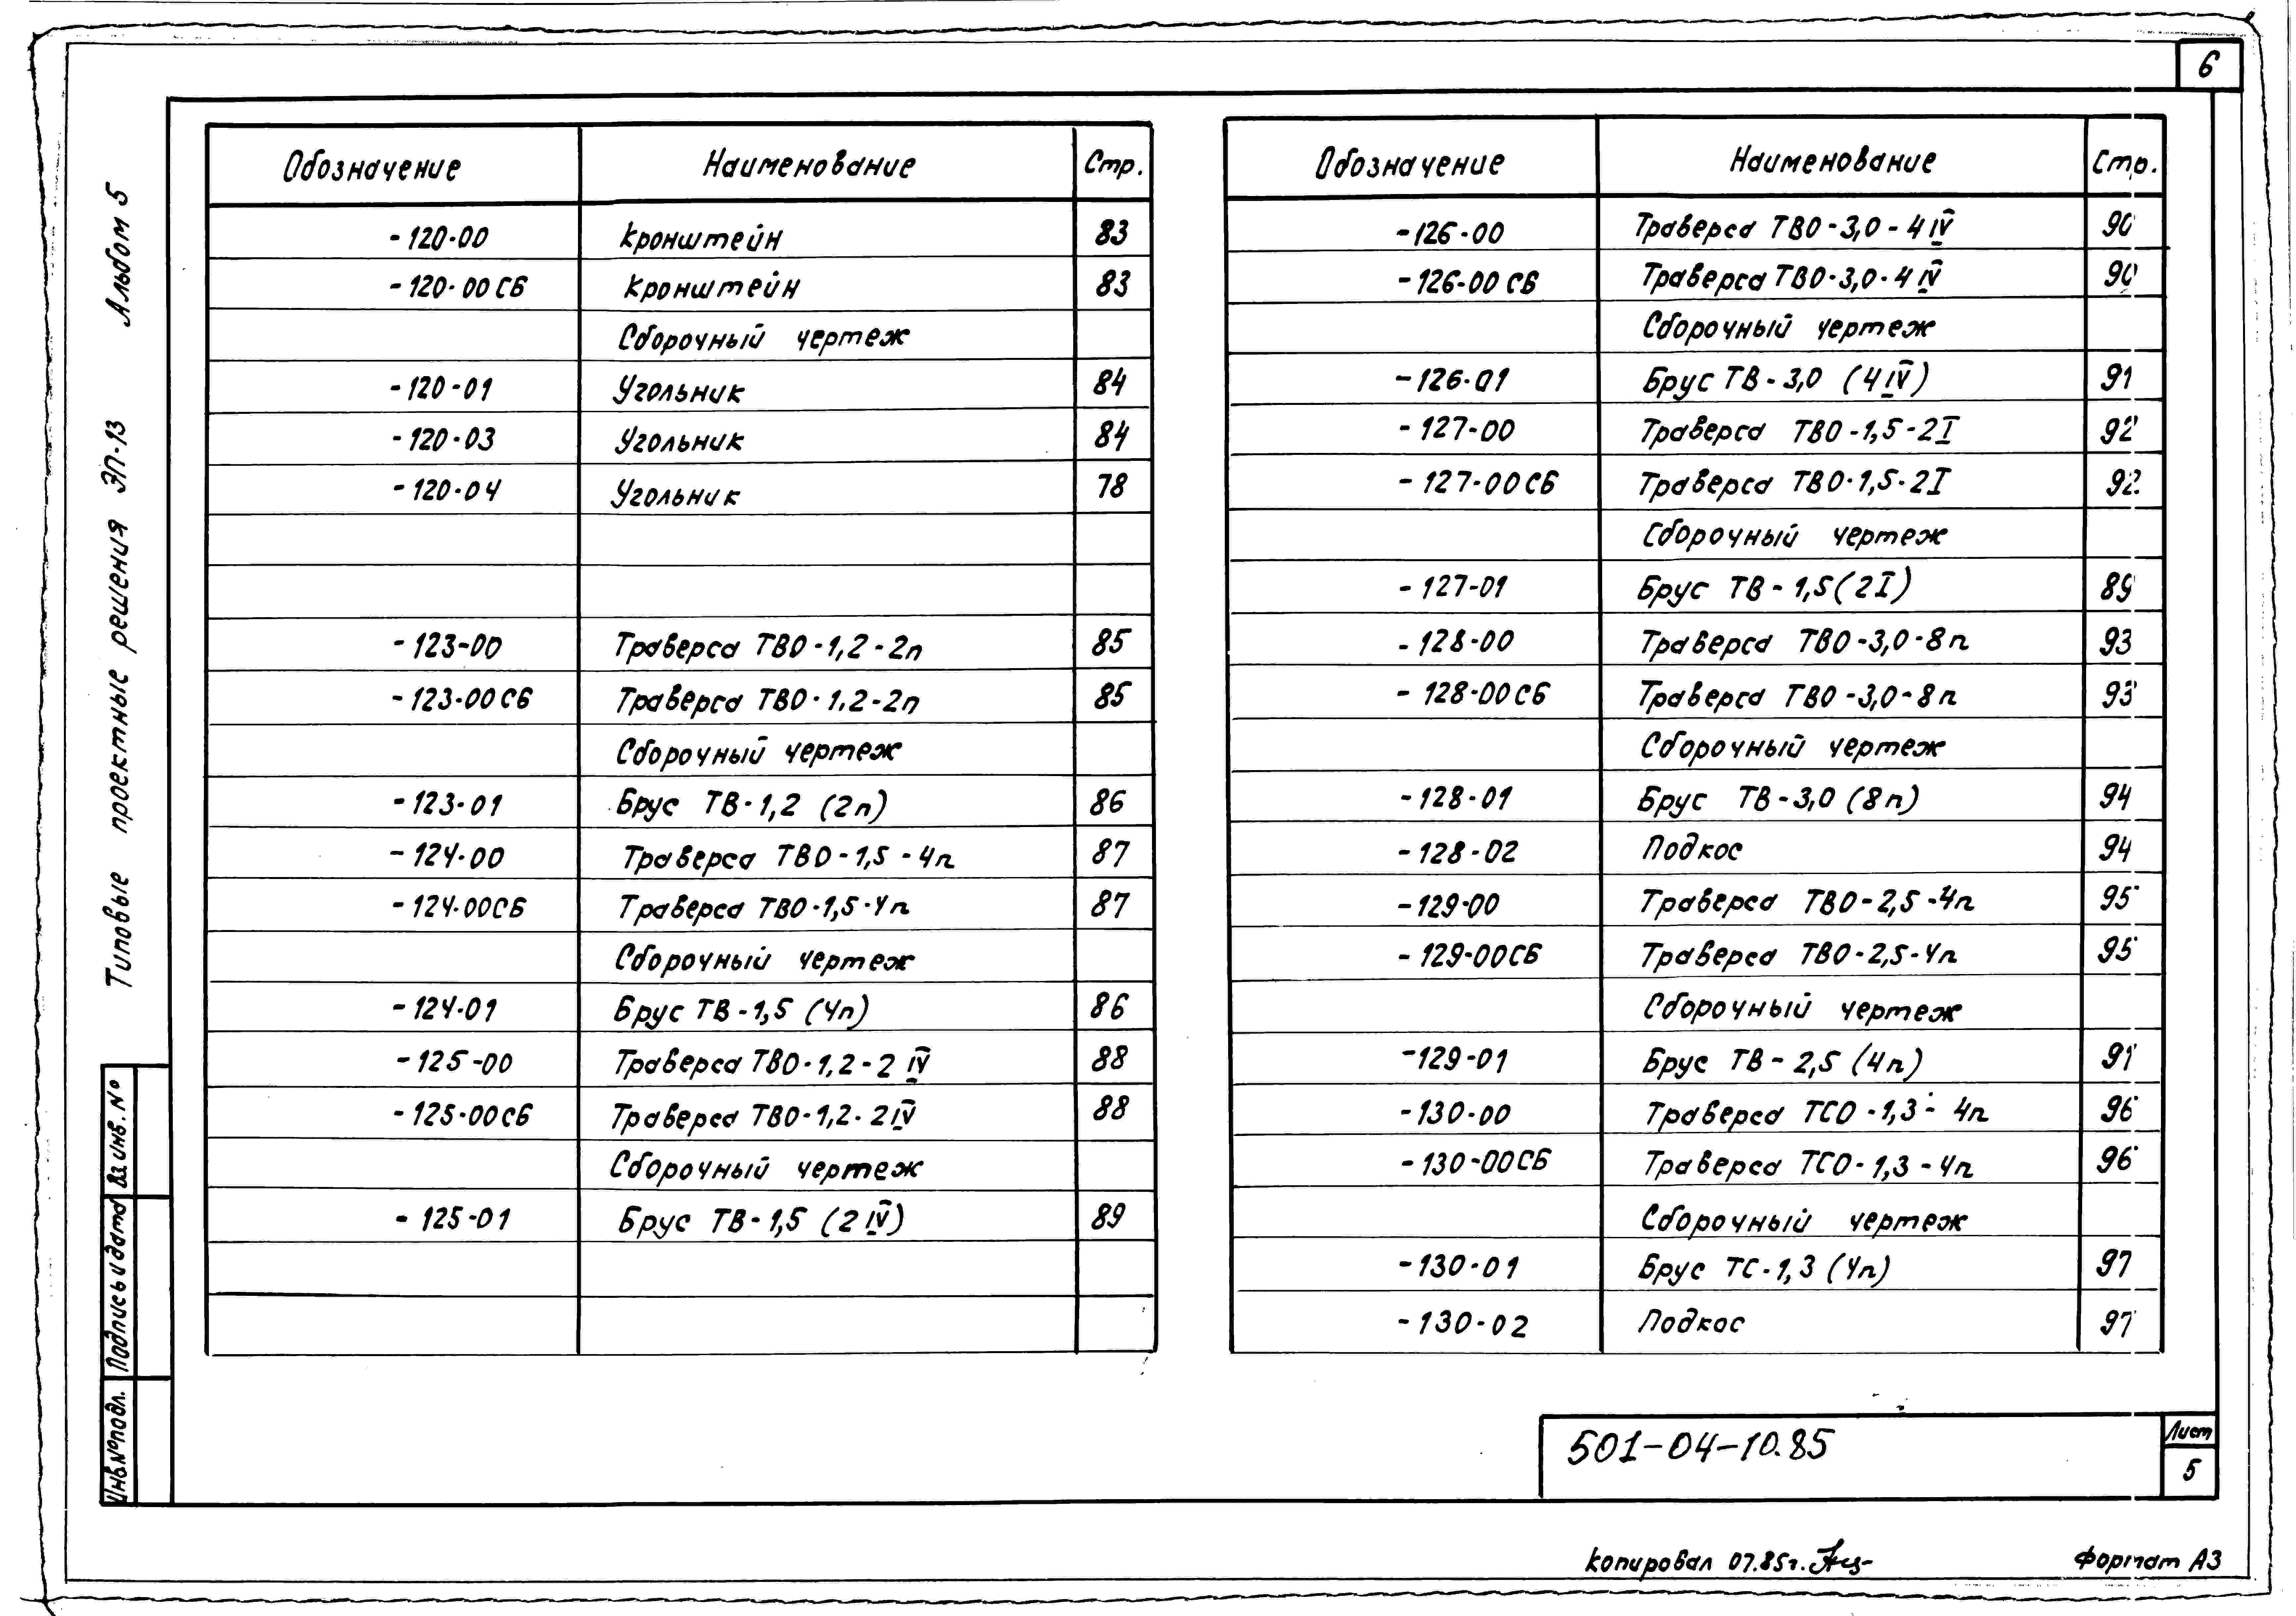 6
Альбом 5
Типовые проектные решения ЭП-13
Обозначение Наименование Стр.
-120-00 Кронштейн 83
-120-00СБ Кронштейн 83
Сборочный чертеж
-120-01 Угольник 84
-120-03 Угольник 84
-120-04 Угольник 78
-123-00 Траверса ТВО-1,2-2п 85
-123-00СБ Траверса ТВО-1,2-2п 85
Сборочный чертеж
-123-01 Брус ТВ-1,2 (2п) 86
-124-00 Траверса ТВО-1,5-4п 87
-124-00СБ Траверса ТВО-1,5-4п 87
Сборочный чертеж
-124-01 Брус ТВ-1,5 (4п) 86
-125-00 Траверса ТВО-1,2-2IV 88
-125-00СБ Траверса ТВО-1,2-2IV 88
Сборочный чертеж
-125-01 Брус ТВ-1,5 (2IV) 89
Обозначение Наименование Стр.
-126-00 Траверса ТВО-3,0-4IV 90
-126-00СБ Траверса ТВО-3,0-4IV 90
Сборочный чертеж
-126-01 Брус ТВ-3,0 (4IV) 91
-127-00 Траверса ТВО-1,5-2I 92
-127-00СБ Траверса ТВО-1,5-2I 92
Сборочный чертеж
-127-01 Брус ТВ-1,5(2I) 89
-128-00 Траверса ТВО-3,0-8п 93
-128-00СБ Траверса ТВО-3,0-8п 93
Сборочный чертеж
-128-01 Брус ТВ-3,0 (8п) 94
-128-02 Подкос 94
-129-00 Траверса ТВО-2,5-4п 95
-129-00СБ Траверса ТВО-2,5-4п 95
Сборочный чертеж
-129-01 Брус ТВ-2,5 (4п) 91
-130-00 Траверса ТСО-1,3-4п 96
-130-00СБ Траверса ТСО-1,3-4п 96
Сборочный чертеж
-130-01 Брус ТС-1,3 (4п) 97
-130-02 Подкос 97
Вз инв. №
Подпись и дата
Инв№подл.
501-04-10.85
Лист
5
Копировал 07.85г.
Формат А3